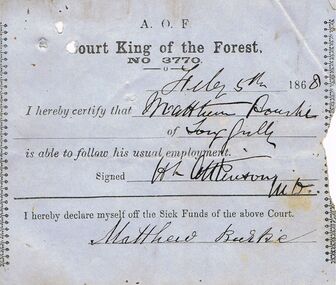 A. O. F
Court King of the Forest.
NO 3770.
July 5th 1868
I hereby certify that Matthew Bourke
of Long Gully
is able to follow his usual employment.
Signed H L Atkinson
M.D.
I hereby declare myself off the Sick Funds of the above Court.
Matthew Burke